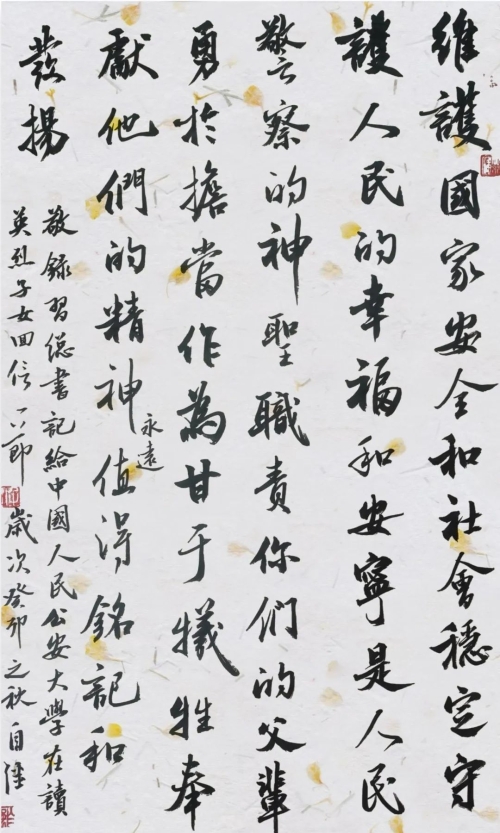 維護國家安全和社會穩定守
護人民的幸福和安寧是人民
警察的神聖職責你們的父輩
勇於擔當作為甘于犧牲奉
獻他們的精神值得銘記和
永遠
發揚
敬錄習總書記給中國人民公安大學在讀
英烈子女回信一節歲次癸卯之秋自